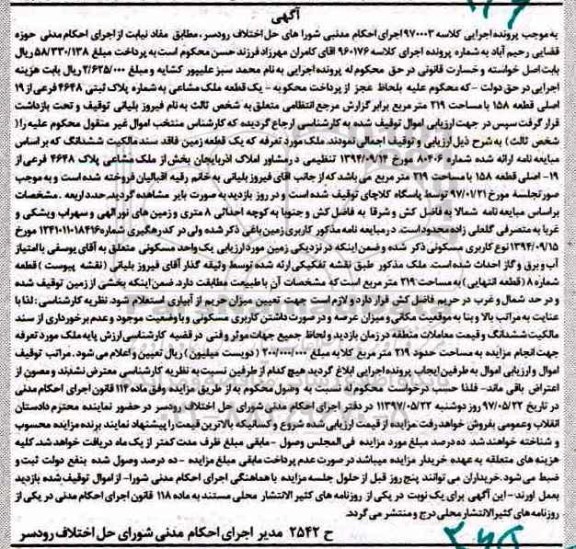 آگهی
به موجب پرونده اجرایی کلاسه ۹۷۰۰۰۳ اجرای احکام مدنی شورا های حل اختلاف رودسر، مطابق مفاد نیابت از اجرای احکام مدنی حوزه
قضایی رحیم آباد به شماره پرونده اجرای کلاسه ۹۶۰۱۷۶ اقای کامران مهرزاد فرزند حسن محکوم است به پرداخت مبلغ ۵۸/۳۳۰/۱۳۸ ریال
بابت اصل خواسته و خسارت قانونی در حق محکوم له پرونده اجرایی به نام محمد سبز علیپور کشایه و مبلغ ۲/۶۲۵/۰۰۰ ریال بابت هزینه
اجرایی در حق دولت - که محکوم علیه بلحاظ عجز از پرداخت محکوم به - یک قطعه ملک مشاعی به شماره پلاک ثبتی ۴۶۴۸ فرعی از ۱۹
اصلی قطعه ۱۵۸ با مساحت ۲۱۹ متر مربع برابر گزارش مرجع انتظامی متعلق به شخص ثالث به نام فیروز بلیانی توقیف و تحت بازداشت
قرار گرفت سپس در جهت ارزیابی اموال توقیف شده به کارشناسی ارجاع گردیده که کارشناس منتخب اموال غیر منقول محکوم علیه را(
شخص ثالث) به شرح ذیل ارزیابی و توقیف اجمالی نمودند. ملک مورد تعرفه که یک قطعه زمین فاقد سند مالکیت ششدانگ که بر اساس
مبایعه نامه ارائه شده شماره ۸۰۴۰۶ مورخ ۱۳۹۴/۰۹/۱۴ تنظیمی در مشاور املاک اذربایجان بخش از ملک مشاعی پلاک ۴۶۴۸ فرعی از
۱۹- اصلی قطعه ۱۵۸ با مساحت ۲۱۹ متر مربع می باشد که از جانب اقای فیروز بلیانی به خانم رقیه اقبالیان فروخته شده است و به موجب
صورتجلسه مورخ ۹۷/۰۱/۲۱ توسط پاسگاه کلاچای توقیف شده است و در روز بازدید به صورت بایر مشاهده گردید.حدد اربعه . مشخصات
براساس مبایعه نامه شمالا به فاضل کش و شرقا به فاضل کش و جنوبا به کوچه احداثی ۸ متری و زمین های نور الهی و سهراب ویشکی و
غربا به متصرفی گلعلی زاده محدود است. در مبایعه نامه مذکور کاربری زمین باغی ذکر شده ولی در کدرهگیری شماره ۱۲۴۱۰۱۱۰۱۸۴۱۶ مورخ
۱۳۹۴/۰۹/۱۵ نوع کاربری مسکونی ذکر شده و ضمن اینکه در نزدیکی زمین مورد ارزیابی یک واحد مسکونی متعلق به آقای یوسفی با امتیاز
آب و برق و گاز احداث شده است. ملک مذکور طبق نقشه تفکیکی ارئه شده توسط وثیقه گذار آقای فیروز بلیانی (نقشه پیوست) قطعه
شماره ۸ (قطعه انتهایی) به مساحت ۲۱۹ متر مربع است که مشخصات آن با طبیعت مطابقت دارد. ضمن اینکه بخشی از زمین توقیف شده
و در حد شمال و غرب در حریم فاضل کش قرار دارد و لازم است جهت تعیین میزان حریم از آبیاری استعلام شود. نظریه کارشناسی : لذا با
عنایت به مراتب بالا و بنا به موقعیت مکانی و میزان عرصه و در صورت داشتن کاربری مسکونی و با وضعیت موجود و عدم برخورداری از سند
مالکیت ششدانگ و قیمت معاملات منطقه در زمان بازدید و لحاظ جمیع جهات موثر وفنی در قضیه کارشناسی ارزش پایه ملک مورد تعرفه
جهت انجام مزایده به مساحت حدود ۲۱۹ متر مربع کلا به مبلغ ۲۰۰/۰۰۰/۰۰۰ (دویست میلیون) ریال تعیین و اعلام می شود. مراتب توقیف
اموال و ارزیابی اموال به طرفین ایجاب پرونده اجرایی ابلاغ گردید هیچ کدام از طرفین نسبت به نظریه کارشناسی معترض نشدند و مصون از
اعتراض باقی ماند- فلذا حسب درخواست محکوم له نسبت به وصول محکوم به از طریق مزایده وفق ماده ۱۱۴ قانون اجرای احکام مدنی
در تاریخ ۹۷/۰۵/۲۲ روز دوشنبه ۱۱۳۹۷/۰۵/۲۲ در دفتر اجرای احکام مدنی شورای حل اختلاف رودسر در حضور نماینده محترم دادستان
انقلاب وعمومی بفروش خواهد رفت مزایده از قیمت ارزیابی شده شروع و کسانیکه بالاترین قیمت را پیشنهاد نمایند برنده مزایده محسوب
و شناخته خواهند شد. ده درصد مبلغ مورد مزایده فی المجلس وصول - مابقی مبلغ ظرف مدت کمتر از یک ماه دریافت خواهد شد. کلیه
هزینه های متعلقه به عهده خریدار مزایده میباشد در صورت عدم پرداخت مابقی مبلغ مزایده - ده درصد وصول شده بنفع دولت ثبت و
ضبط می شود.خریداران می توانند پنج روز قبل از حلول جلسه مزایده با هماهنگی اجرای احکام مدنی شورا - از اموال توقیف شده بازدید
بعمل اورند- این آگهی برای یک نوبت در یکی از روزنامه های کثیر الانتشار محلی مستند به ماده ۱۱۸ قانون اجرای احکام مدنی در یکی از
روزنامه های کثیر الانتشار محلی درج و منتشر می گردد.
ح ۲۵۴۲ مدیر اجرای احکام مدنی شورای حل اختلاف رودسر